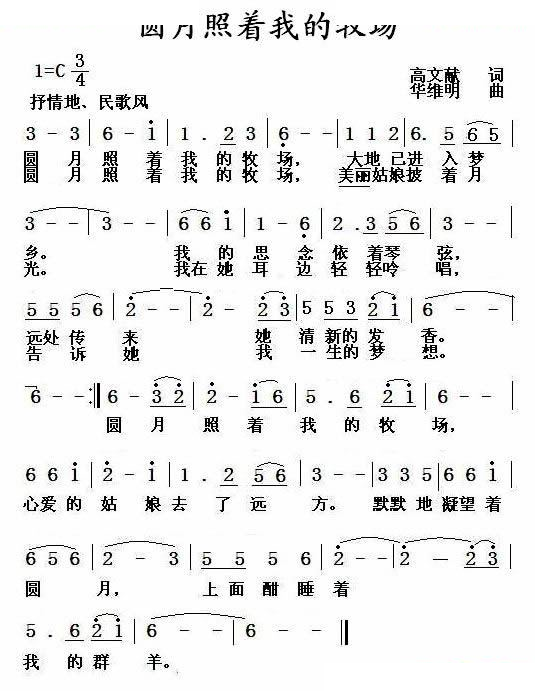 圆月照着我的牧场
1=C 3/4
高文献 词
抒情地、民歌风
华维明 曲
3 - 3 | 6 - 1 | 1 . 2 3 | 6 - - | 1 1 2 | 6. 5 6 5 |
圆 月 照 着 我 的 牧 场, 大地 已进 入 梦
圆 月 照 着 我 的 牧 场, 美丽姑娘披 着 月
3 - - | 3 - - | 6 6 1 | 1 - 6 | 2 . 3 5 6 | 3 - - |
乡。 我 的 思 念 依 着 琴 弦,
光。 我在 她 耳 边 轻 轻 吟 唱,
5 5 5 6 | 2 - - | 2 - 2 3 | 5 5 3 2 1 | 6 - - |
远处 传 来 她 清 新的 发 香。
告 诉 她 我 一 生的 梦 想。
6 - - :| 6 - 3 2 | 2 - 1 6 | 5 . 6 2 1 | 6 - - |
圆 月 照 着 我 的 牧 场,
6 6 1 | 2 - 1 | 1 . 2 5 6 | 3 - - | 3 3 5 | 6 6 1 |
心爱 的 姑 娘 去 了 远 方。 默默 地 凝望 着
6 5 6 | 2 - 3 | 5 5 5 6 | 2 - - | 2 - 2 3 |
圆 月, 上 面 酣 睡 着
5 . 6 2 1 | 6 - - | 6 - - ‖
我 的 群 羊。